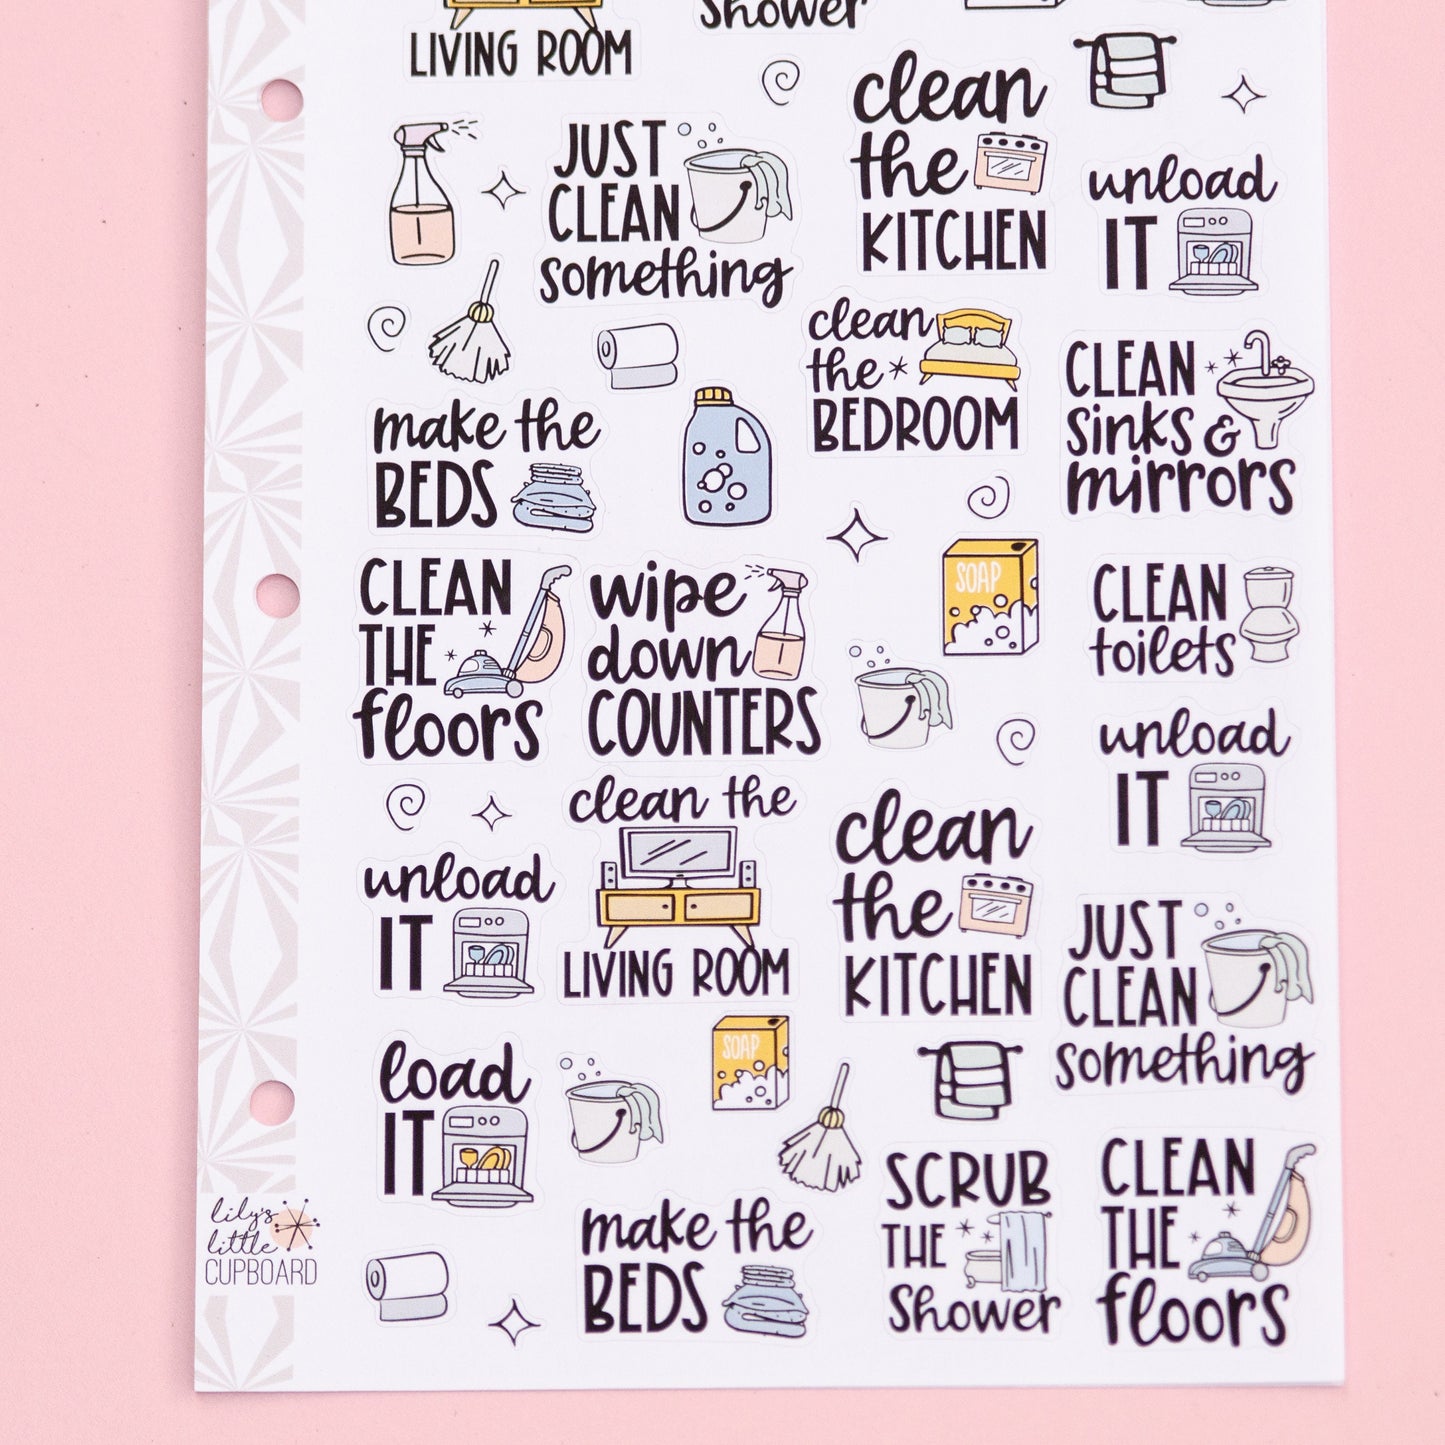 LIVING ROOM
Shower
JUST
CLEAN
something
clean
the
KITCHEN
unload
IT
clean
the
BEDROOM
CLEAN
sinks &
mirrors
make the
BEDS
CLEAN
THE
floors
wipe
down
COUNTERS
SOAP
CLEAN
toilets
unload
IT
clean the
LIVING ROOM
unload
IT
clean
the
KITCHEN
JUST
CLEAN
something
load
IT
SOAP
make the
BEDS
SCRUB
THE
Shower
CLEAN
THE
floors
lily's
little
CUPBOARD